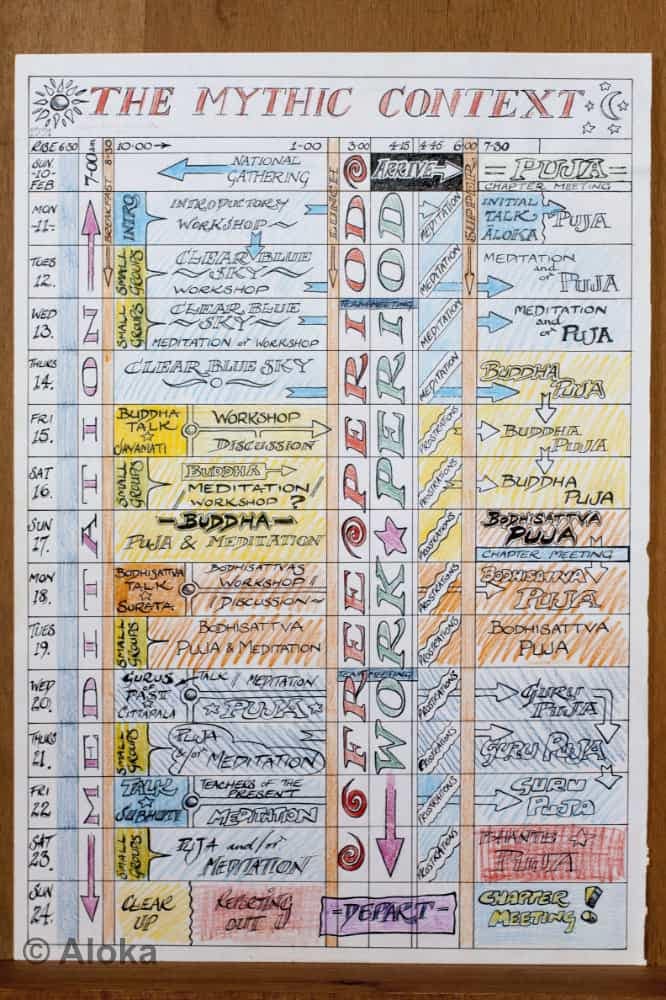 THE MYTHIC CONTEXT
RISE 6:30
7-00am
BREAKFAST 8-30
10-00
1-00
LUNCH
3-00
4-15
4-45
6-00
SUPPER
7-30
MEDITATION
FREE PERIOD
WORK PERIOD
SUN.
-10-
FEB
NATIONAL
GATHERING
ARRIVE
=PUJA=
CHAPTER MEETING
MON
-11-
INTRO
INTRODUCTORY
WORKSHOP
MEDITATION
INITIAL
TALK
ALOKA
PUJA
TUES
12.
SMALL
GROUPS
CLEAR BLUE
SKY
WORKSHOP
MEDITATION
MEDITATION
and
or PUJA
WED
13.
SMALL
GROUPS
CLEAR BLUE
SKY
MEDITATION or WORKSHOP
TEAM MEETING
MEDITATION
MEDITATION
and
or PUJA
THURS
14.
CLEAR BLUE SKY
MEDITATION
BUDDHA
PUJA
FRI
15.
BUDDHA
TALK
JAYAMATI
WORKSHOP
DISCUSSION
PROSTRATIONS
BUDDHA
PUJA
SAT
16.
SMALL
GROUPS
BUDDHA
MEDITATION
WORKSHOP ?
PROSTRATIONS
BUDDHA
PUJA
SUN
17.
-BUDDHA-
PUJA & MEDITATION
PROSTRATIONS
BODHISATTVA
PUJA
CHAPTER MEETING
MON
18.
BODHISATTVA
TALK
SURATA
BODHISATTVAS
WORKSHOP
DISCUSSION
PROSTRATIONS
BODHISATTVA
PUJA
TUES
19.
SMALL
GROUPS
BODHISATTVA
PUJA & MEDITATION
PROSTRATIONS
BODHISATTVA
PUJA
WED
20.
GURUS
OF
PAST
CITTAPALA
TALK
MEDITATION
PUJA
TEAM MEETING
PROSTRATIONS
GURU
PUJA
THURS
21.
SMALL
GROUPS
PUJA
&/or MEDITATION
PROSTRATIONS
GURU PUJA
FRI
22
TALK
SUBHUTI
TEACHERS OF THE
PRESENT
MEDITATION
PROSTRATIONS
GURU
PUJA
SAT
23.
SMALL
GROUPS
PUJA and/or
MEDITATION
PROSTRATIONS
BHANTE
PUJA
SUN
24.
CLEAR
UP
REPORTING
OUT
=DEPART=
CHAPTER
MEETING!
© Aloka